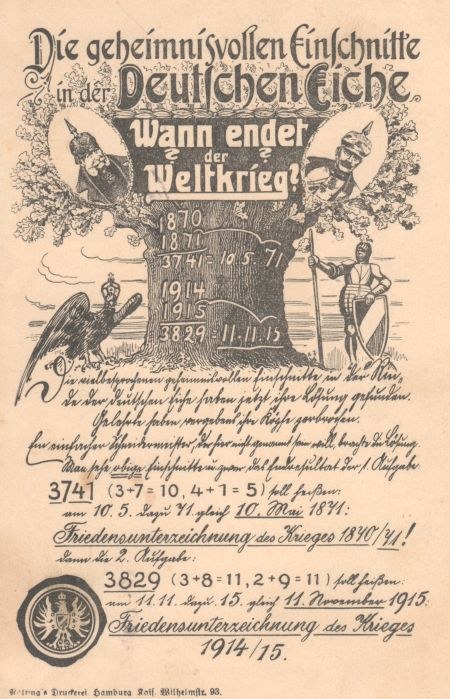 Die geheimnisvollen Einschnitte
in der Deutschen Eiche
Wann endet
der
Weltkrieg?
1870
1871
3741 = 10. 5. 71
1914
1915
3829 = 11. 11. 15
Die vielbesprochenen geheimnisvollen Einschnitte in der Rin-
de der deutschen Eiche haben jetzt ihre Lösung gefunden.
Gelehrte haben vergebens ihre Köpfe zerbrochen.
Ein einfacher Schneidermeister, der hier nicht genannt sein will, brachte die Lösung.
Man sehe obige Einschnitte u. zwar das Endresultat der 1. Aufgabe
3741 (3+7=10, 4+1=5) soll heißen:
am 10. 5. dazu 71. gleich 10. Mai 1871:
Friedensunterzeichnung des Krieges 1870/71!
dann die 2. Aufgabe:
3829 (3+8=11, 2+9=11) soll heißen:
am 11. 11. dazu 15. gleich 11. November 1915:
Friedensunterzeichnung des Krieges
1914/15.
Druckerei Hamburg Kais. Wilhelmstr. 93.